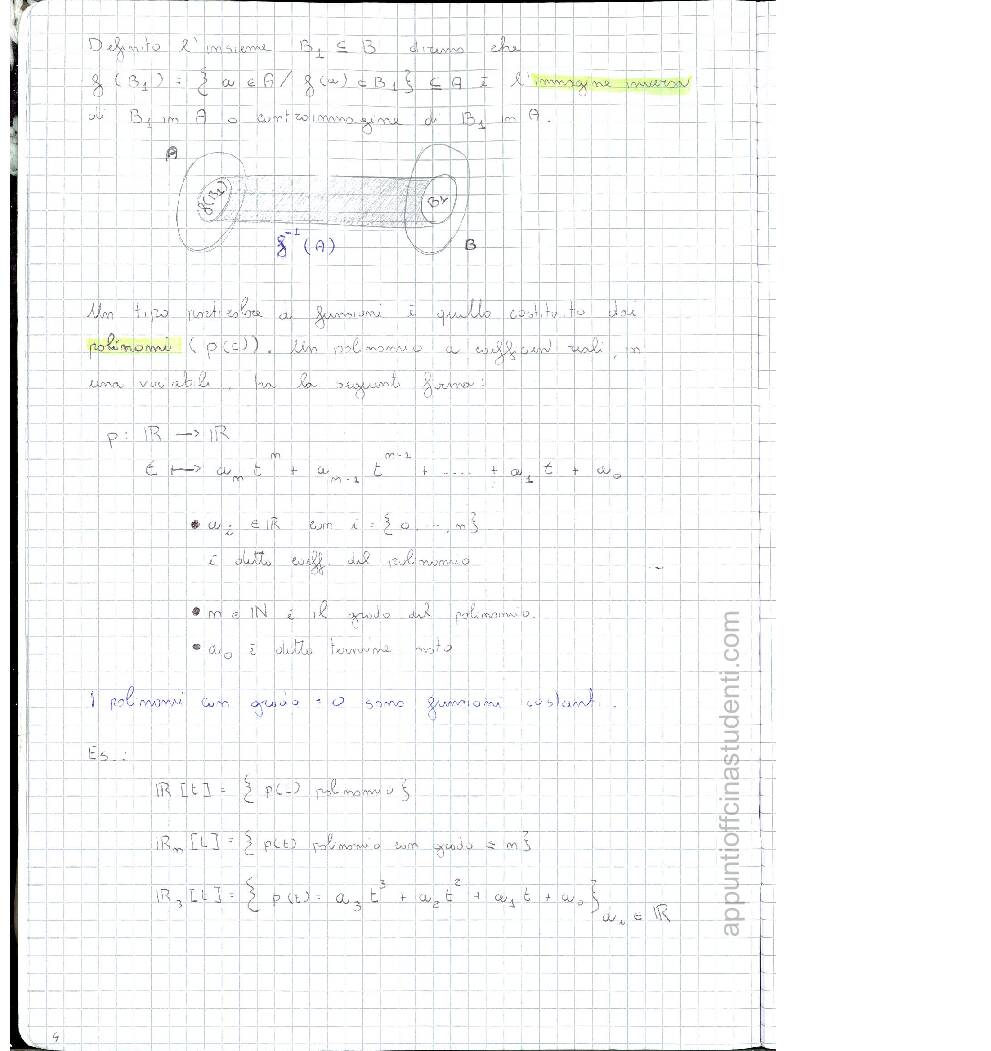 Definito l'insieme B₁ ⊆ B diremo che
f(B₁) = { a ∈ A / f(a) ∈ B₁} ⊆ A è l'immagine inversa
di B₁ in A o controimmagine di B₁ in A.
A
f(B₁)
B₁
f⁻¹(A)
B
Un tipo particolare di funzioni è quello costituito dai
polinomi (p(t)). Un polinomio a coefficienti reali, in
una variabile, ha la seguente forma:
p: ℝ → ℝ
t ↦ aₙ tⁿ + aₙ₋₁ tⁿ⁻¹ + .... + a₁ t + a₀
• aᵢ ∈ ℝ con i = {0, ..., n}
è detto coeff. del polinomio
• n ∈ ℕ è il grado del polinomio.
• a₀ è detto termine noto
I polinomi con grado = 0 sono funzioni costanti.
Es.:
ℝ[t] = { p(-) polinomio}
ℝₙ[t] = { p(t) polinomio con grado ≤ n}
ℝ₃[t] = { p(t) = a₃ t³ + a₂ t² + a₁ t + a₀} aᵢ ∈ ℝ
4
appuntioffcinastudenti.com